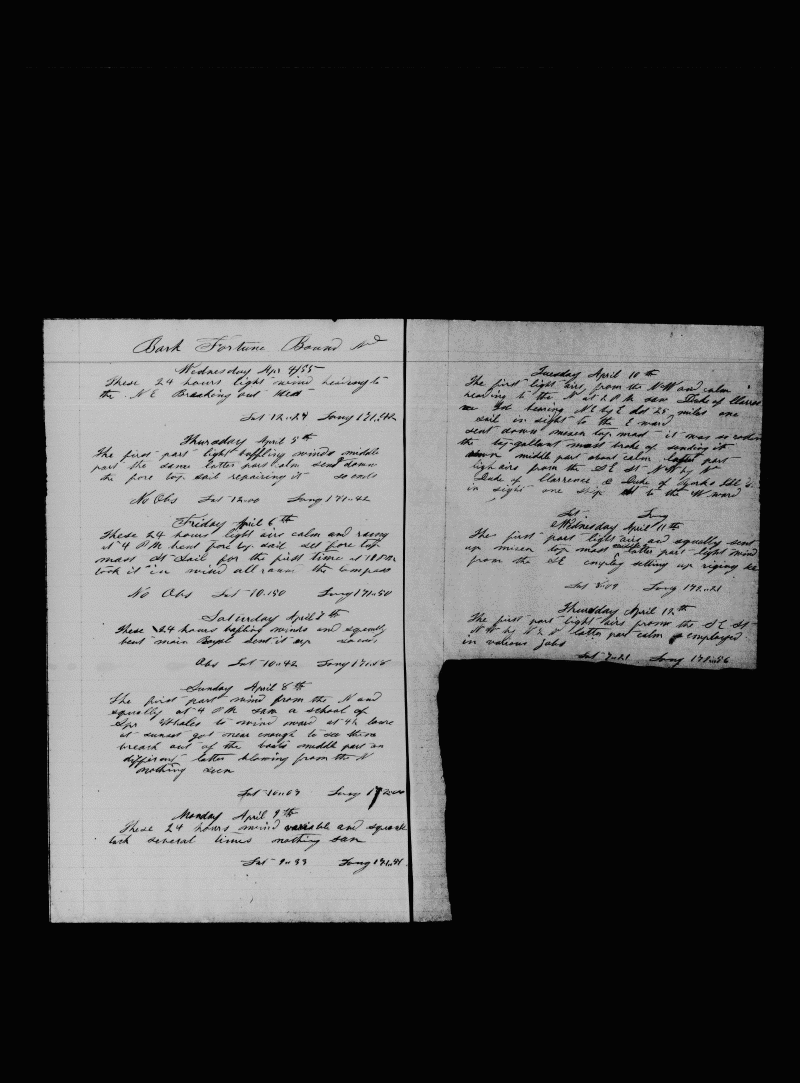 Bark Fortune Bound Nd
Wednesday Apr 4/55
These 24 hours light wind heading to
the N E Breaking out
Lat 12..24 Long 171..
Thursday April 5th
The first part light baffling winds middle
part the same latter part calm sent down
the fore top sail repairing it
No Obs Lat 12.00 Long 171..42
Friday April 6th
These 24 hours light airs calm and rainy
at 4 P M bent fore top sail set fore top
mass St Sail for the first time at
took it in wind all round the compass
No Obs Lat 10..50 Long 171..50
Saturday April 7th
These 24 hours baffling winds and squally
bent main Royal Sail sent it up
Obs Lat 10..42 Long 171..58
Sunday April 8th
The first part wind from the N and
squally at 4 P M saw a school of
Spr Whales to wind ward at 4h
at sunset got near enough to see them
breach out of the boats middle part
different latter blowing from the N
nothing seen
Lat 10..09 Long
Monday April 9th
These 24 hours wind variable and
tack several times nothing saw
Lat 9..33 Long 171..41
Tuesday April 10th
The first light airs, from the N W and calm
heading to the N at 2 P M saw Duke of Claren
ce bearing N E by E dist 25 miles one
sail in sight to the E ward
sent down mizen top mast it was so
the top gallant mast broke of sending it
down middle part about calm latter part
ligh airs from the S E St N W by N
Duke of Clarrence & Duke of Yorks
in sight one ship to the W ward
Lat Long
Wednesday April 11th
The first part light airs and squally sent
up mizen top mast middle & latter part light wind
from the S E employ setting up riging
Lat 8..09 Long 172..21
Thursday April 12th
The first part light airs from the S E St
N W by latter part calm employed
in various jobs
Lat 7..21 Long